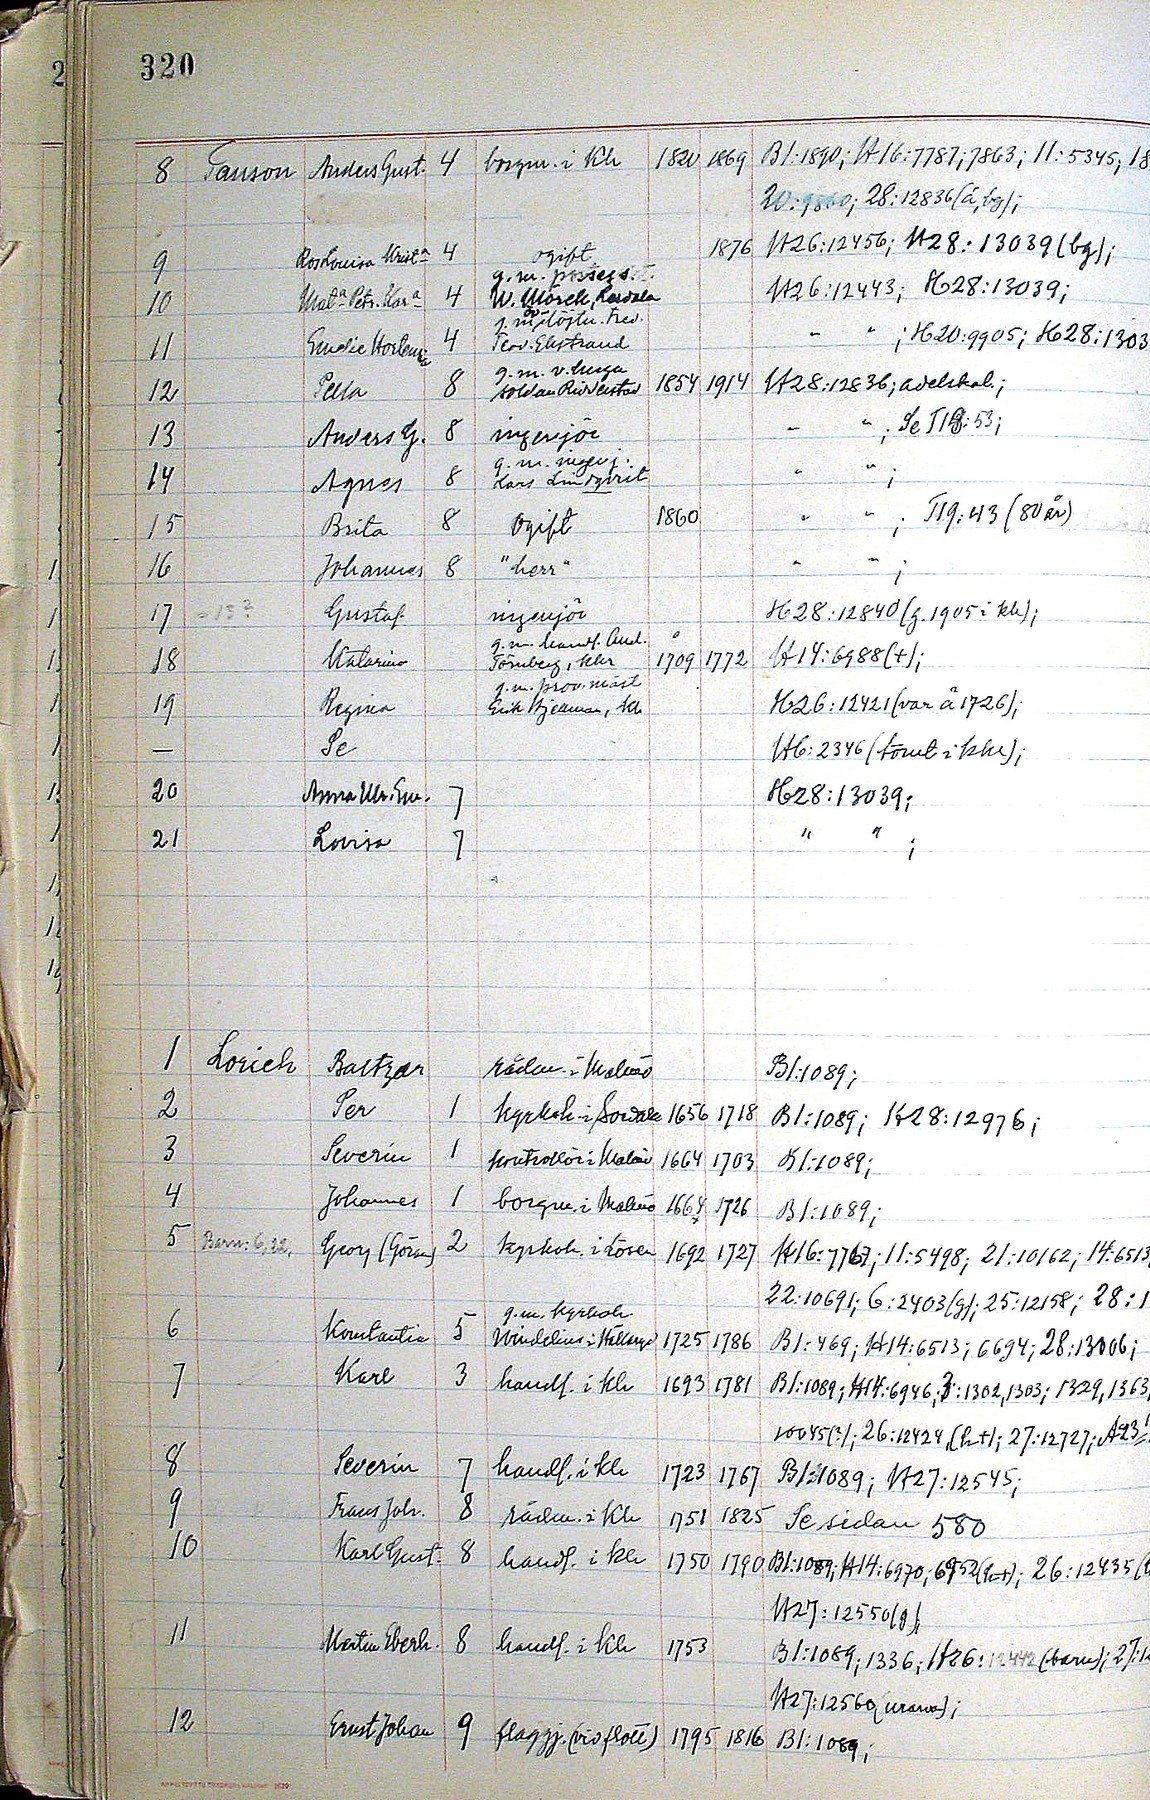 320
8 Fauson Anders Gust. 4 borgm. i Kh 1820 1869 B1:1890; H16:7787; 7863; 11:5345; 18
20:9860; 28:12836 (å, bg);
9 4 ogift 1876 H26:12456; H28:13039 (bg);
g.m.
10 4 W. H26:12443; H28:13039;
11 4 Ekstrand " " ; H20:9905; H28:1303
g.m.
12 8 1854 1914 H28:12836; adelskal.;
13 Anders G. 8 ingenjör " " ; Se T19:53;
g.m. ingenj.
14 Agnes 8 Lars Lindqvist " " ;
15 Brita 8 Ogift 1860 " " ; T19:43 (80 år)
16 Johannes 8 "herr" " " ;
17 =13? Gustaf ingenjör H28:12840 (g. 1905 i kh);
g.m. handl. And.
18 Katarina Törnberg, khr 1709 1772 H14:6988 (+);
g.m. prov.mäst
19 Regina Erik Bjellman, kh H26:12421 (var å 1726);
— Se H6:2346 (tomt i khr);
20 Anna Ulr. 7 H28:13039;
21 Lovisa 7 " " ;
1 Lorich Baltzar rådm. i Malmö B1:1089;
2 Per 1 kyrkoh. i 1656 1718 B1:1089; H28:12976;
3 Severin 1 kontrollör i Malmö 1664 1703 B1:1089;
4 Johannes 1 borgm. i Malmö 1664 1726 B1:1089;
5 Barn: 6, 22, Georg (Göran) 2 kyrkoh. i Lösen 1692 1727 H16:7767; 11:5498; 21:10162; 14:6513
22:10691; 6:2403 (g); 25:12158; 28:1
g.m. kyrkoh
6 Konstantia 5 Windelius i 1725 1786 B1:469; H14:6513; 6694; 28:13006;
7 Karl 3 handl. i kh 1693 1781 B1:1089; H14:6946; 3:1302, 1303; 1329, 1363,
10045 (?); 26:12424 (h+); 27:12727;
8 Severin 7 handl. i kh 1723 1767 B1:1089; H27:12545;
9 Frans Joh. 8 rådm. i Kh 1751 1825 Se sidan 580
10 Karl Gust. 8 handl. i kh 1750 1790 B1:1089; H14:6970; 6952 (h+); 26:12435
H27:12550 (g);
11 Martin Eberh. 8 handl. i kh 1753 B1:1089, 1336; H26:12442 (barn); 27:12
H27:12560
12 Ernst Johan 9 flaggj. (vid flott) 1795 1816 B1:1089;